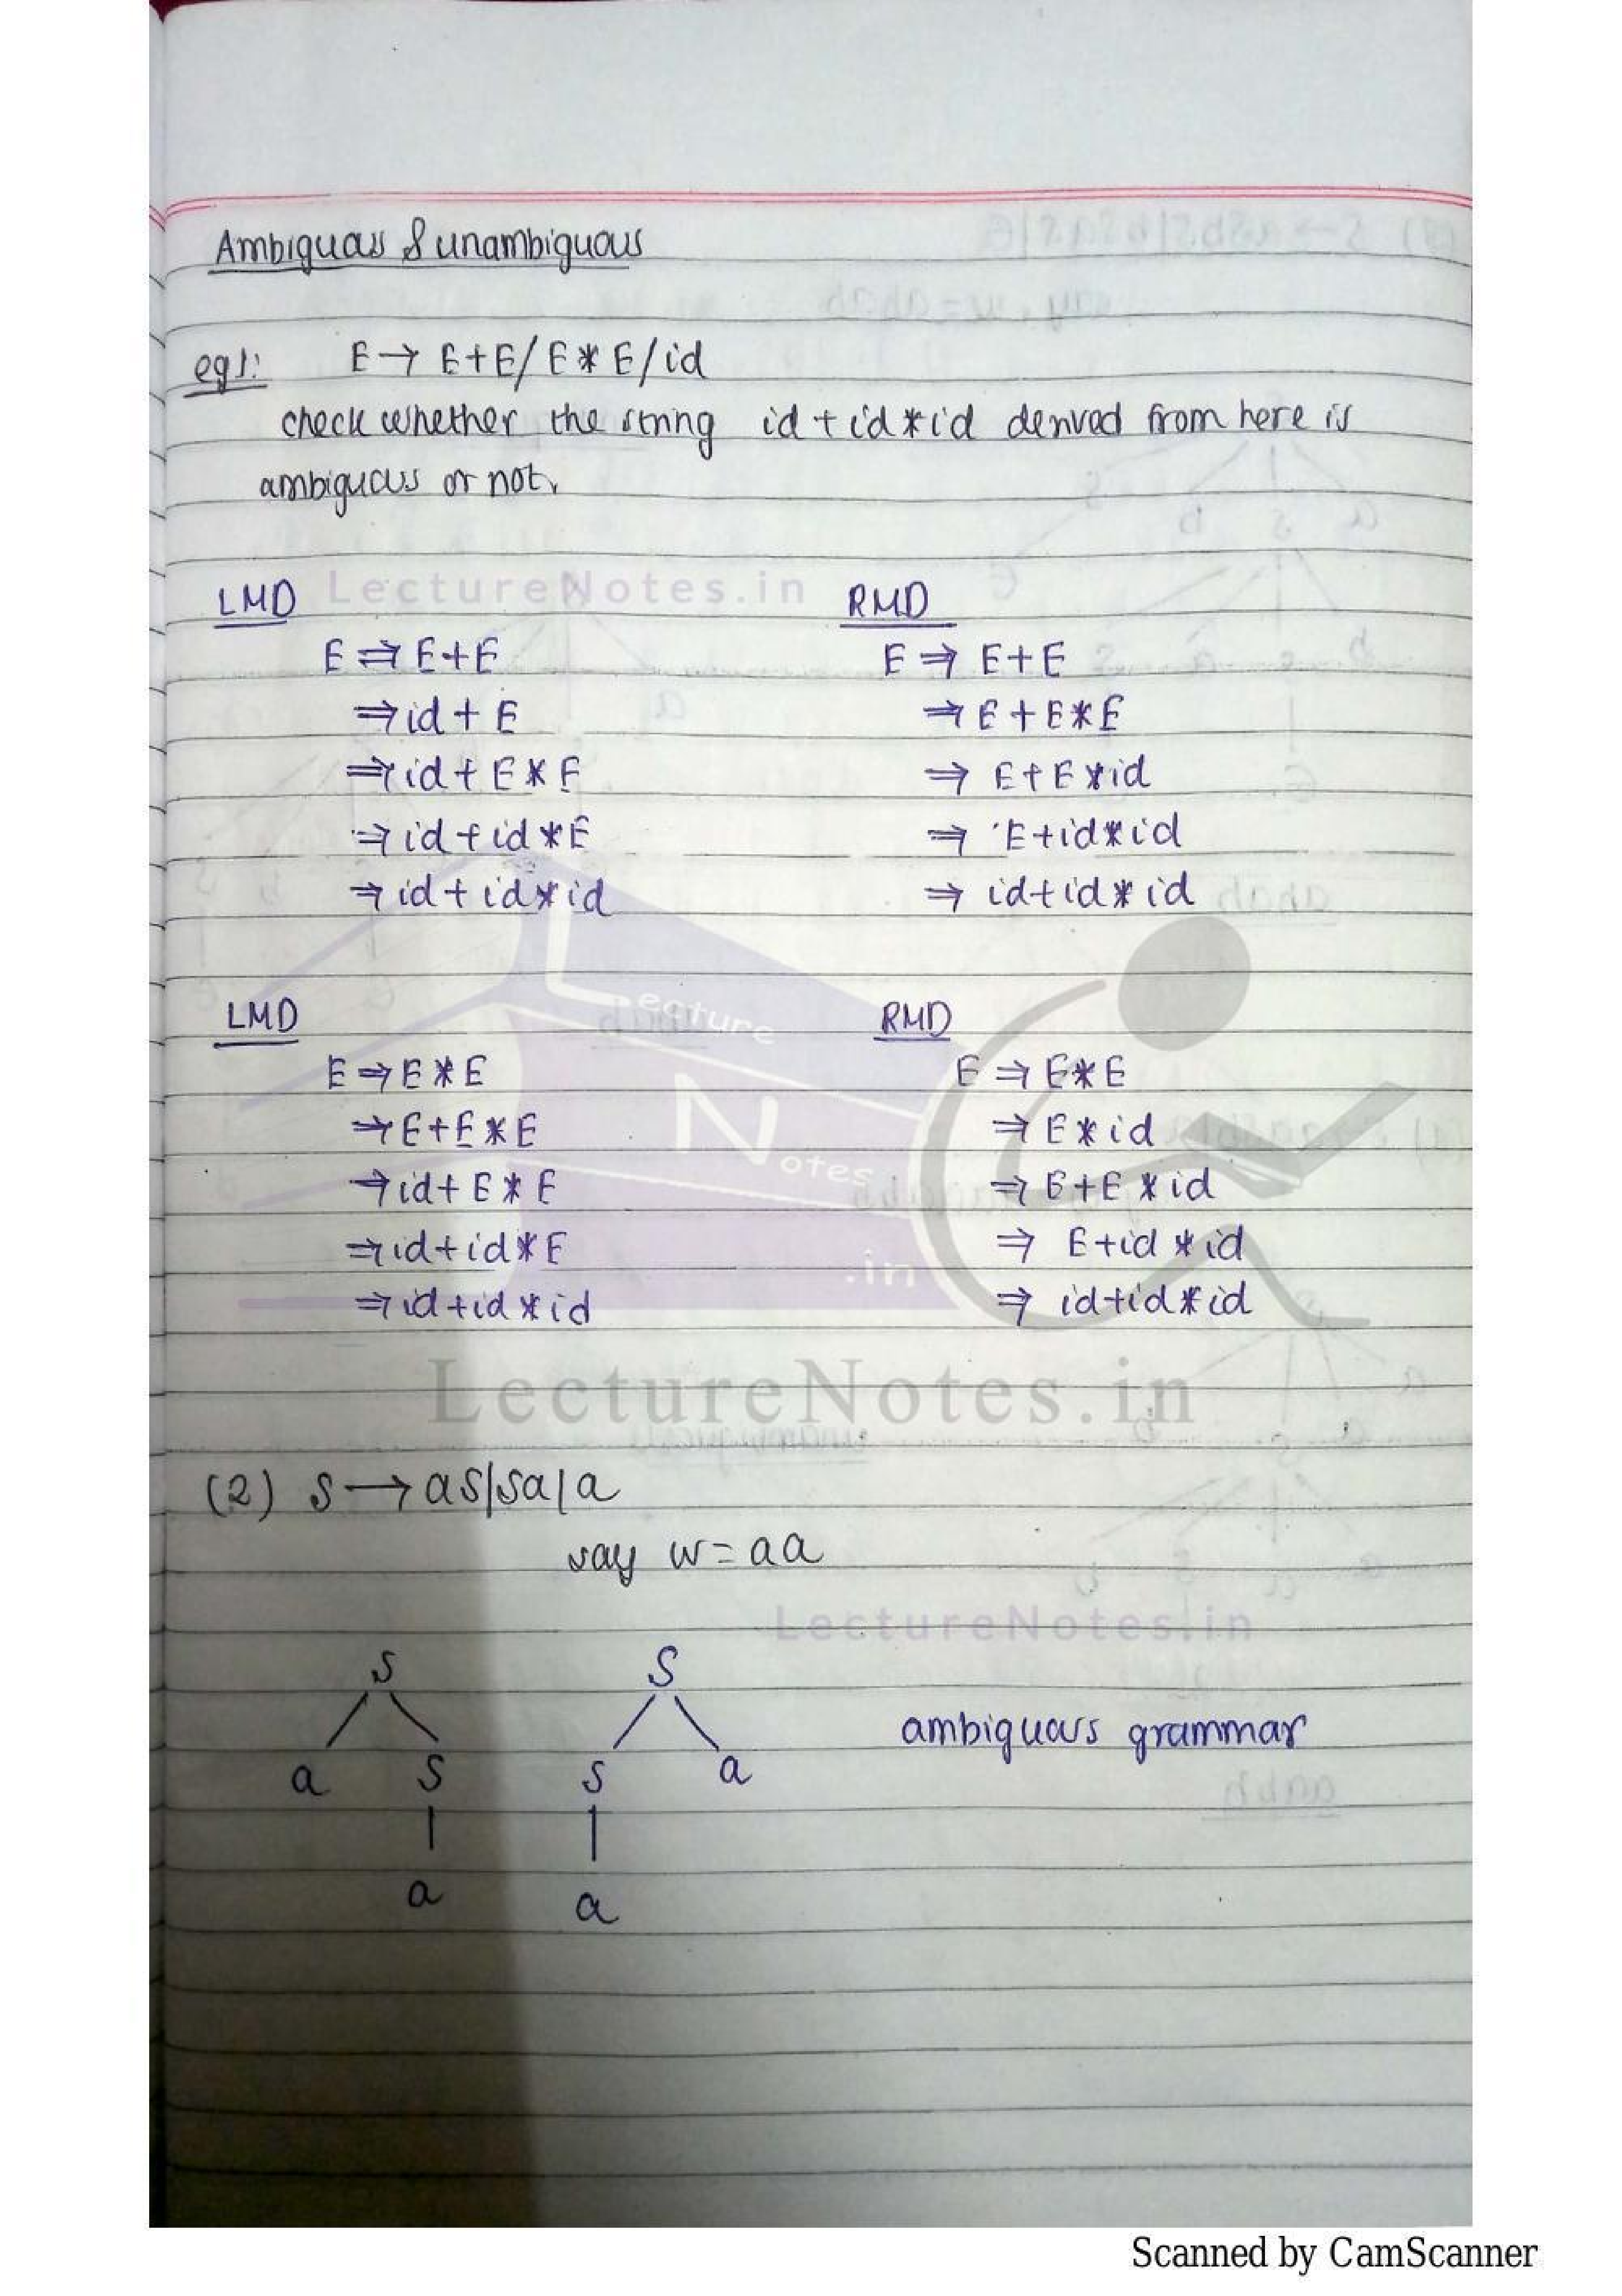 Ambiguous & unambiguous
eg1: E → E+E/ E * E/id
check whether the string id + id * id derived from here is
ambiguous or not.
LectureNotes.in
LMD
E ⇒ E+E
⇒ id + E
⇒ id + E * E
⇒ id + id * E
⇒ id + id * id
RMD
E ⇒ E+E
⇒ E + E * E
⇒ E + E * id
⇒ E+id * id
⇒ id+id * id
LMD
E ⇒ E * E
⇒ E+E * E
⇒ id+ E * E
⇒ id+id * E
⇒ id+id * id
RMD
E ⇒ E * E
⇒ E * id
⇒ E+E * id
⇒ E+id * id
⇒ id+id * id
Lecture
Notes
.in
LectureNotes.in
(2) S → aS|Sa|a
say w = aa
LectureNotes.in
S
a S
a
S
S a
a
ambiguous grammar
Scanned by CamScanner